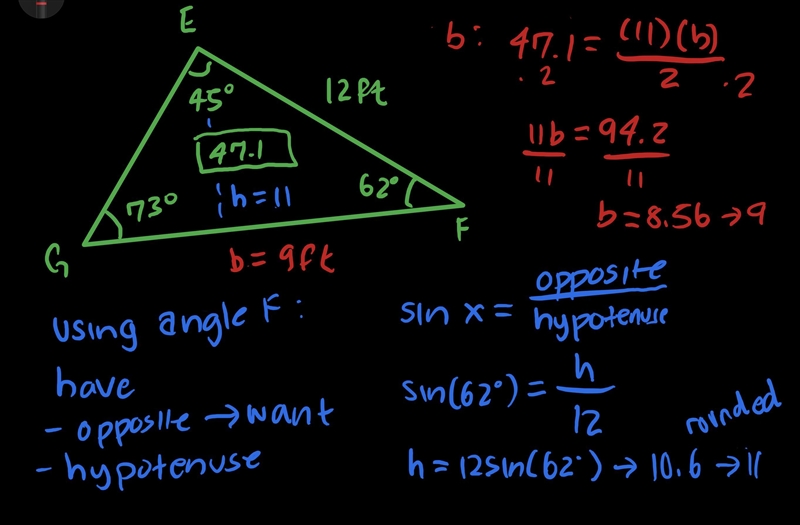 E
12ft
45°
47.1
73°
h = 11
62°
G
F
b = 9ft
b: 47.1 = (11)(b)
2
. 2
. 2
11b = 94.2
11
11
b = 8.56 → 9
using angle F:
have
- opposite → want
- hypotenuse
sin x = opposite
hypotenuse
sin(62°) = h
12
rounded
h = 12sin(62°) → 10.6 → 11